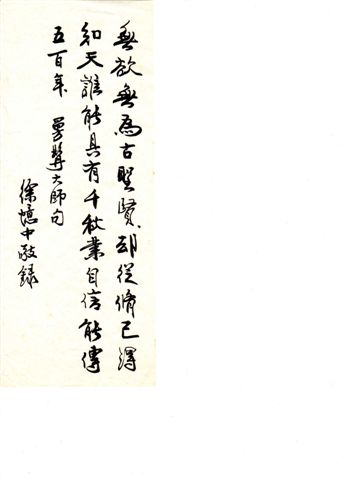 無欲無為古聖賢却從脩己得
知天誰能具有千秋業自信能傳
五百年 曼髯大師句
徐憶中敬錄